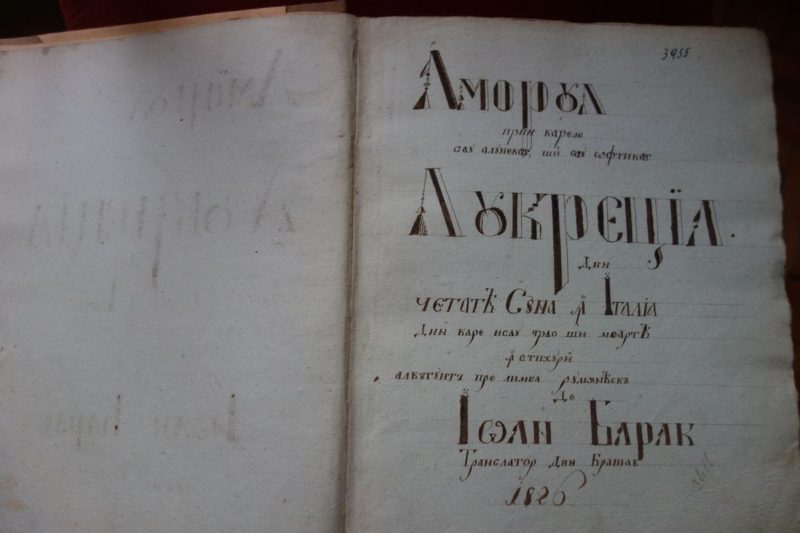 3955
Аморꙋл
прин кареле
сау алꙋнекат, ши сау ѡфтикат
Лꙋкреція.
Дин
четатѣ Сѫна ꙟ Італіа
Дин каре исау трас ши моартѣ
ꙟ стихꙋри
алкѣтꙋитъ пре лимба
де
Іѡан Барак
Транслатор дин Брашов
1826